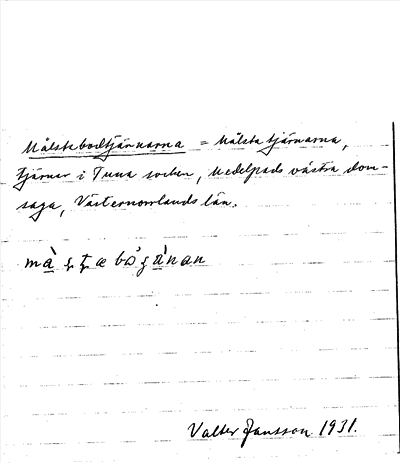 Målstabodtjärnarna = Målsta tjärnarna,
tjärnar i Tuna socken, Medelpads västra dom-
saga, Västernorrlands län.
Valter Jansson 1931.